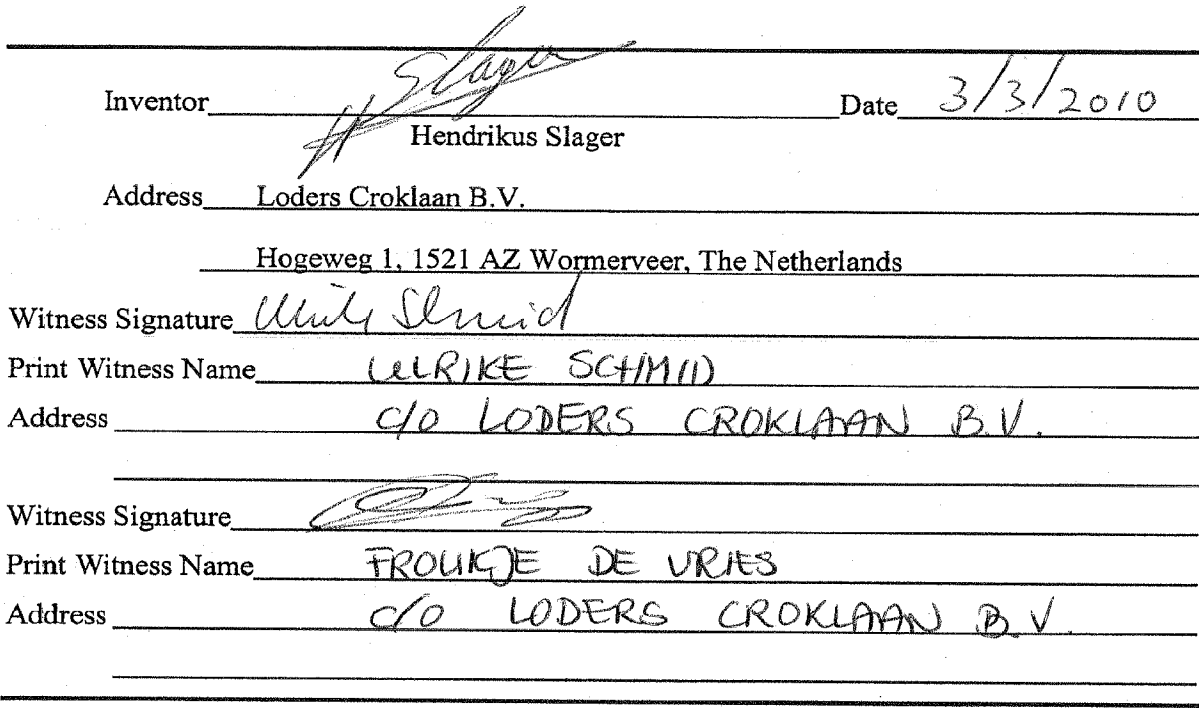 Inventor H Slager Date 3/3/2010
Hendrikus Slager
Address Loders Croklaan B.V.
Hogeweg 1, 1521 AZ Wormerveer, The Netherlands
Witness Signature Ulrike Schmid
Print Witness Name ULRIKE SCHMID
Address c/o LODERS CROKLAAN B.V.
Witness Signature
Print Witness Name FROUKJE DE VRIES
Address c/o LODERS CROKLAAN B.V.